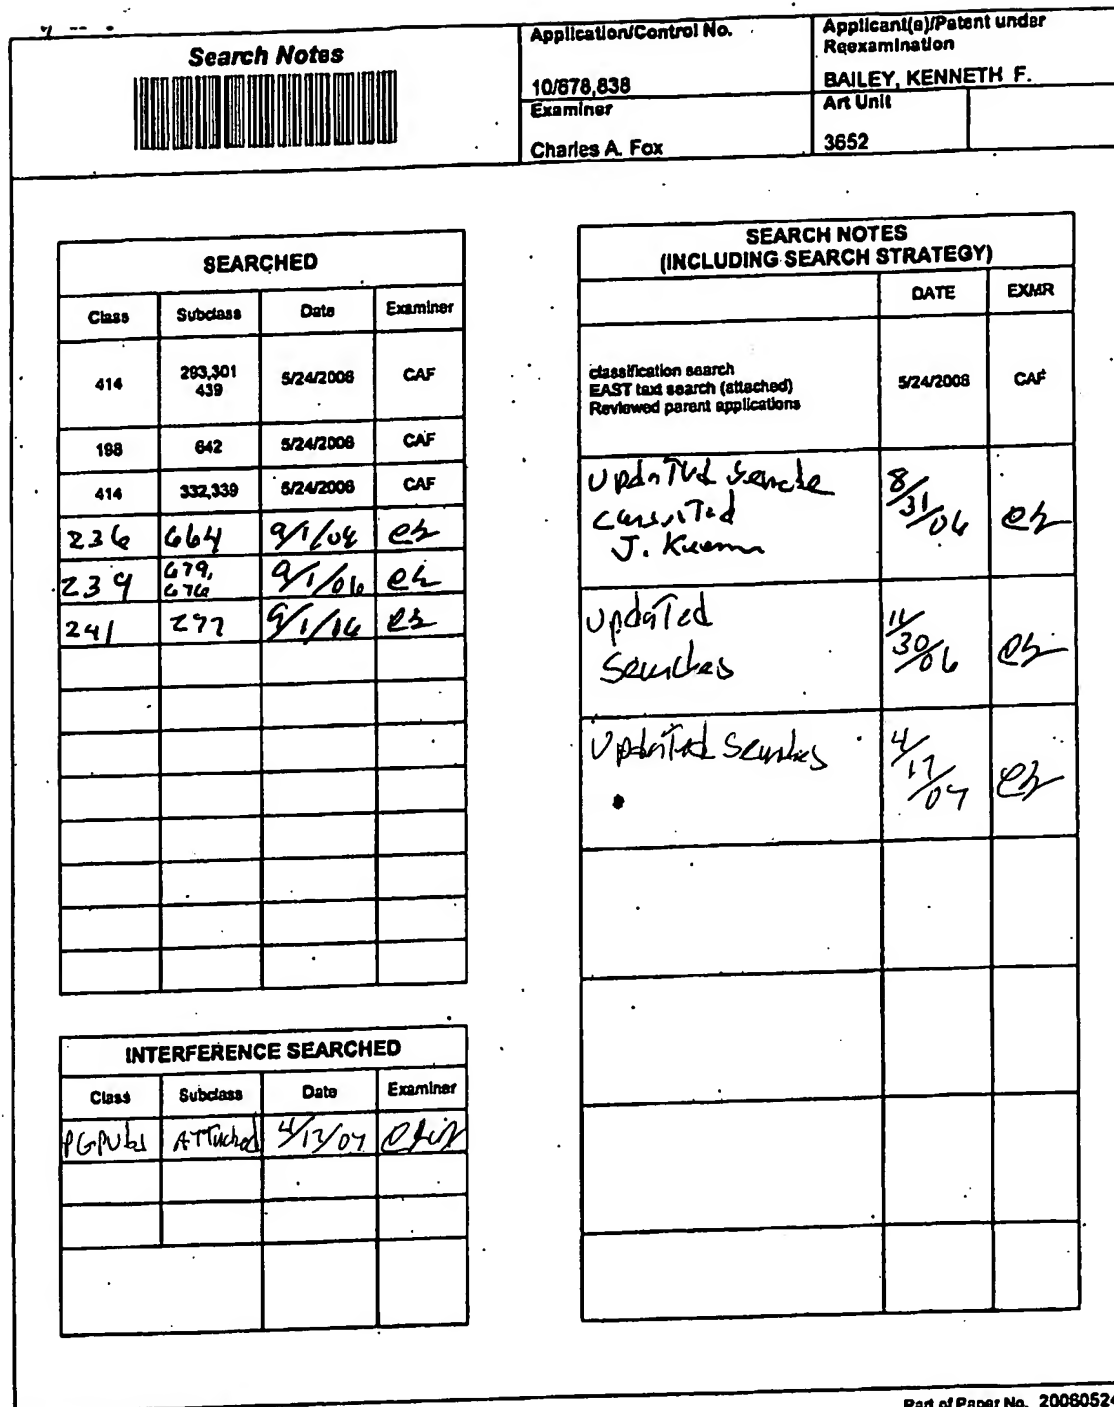 Search Notes
Application/Control No.
Applicant(s)/Patent under
Reexamination
10/678,838
BAILEY, KENNETH F.
Examiner
Art Unit
Charles A. Fox
3652
SEARCHED
Class Subclass Date Examiner
414 293,301 439 5/24/2006 CAF
198 642 5/24/2006 CAF
414 332,339 5/24/2006 CAF
236 664 9/1/06
239 679, 676 9/1/06
241 277 9/1/06
INTERFERENCE SEARCHED
Class Subclass Date Examiner
PGPubs ATTached 4/17/07
SEARCH NOTES
(INCLUDING SEARCH STRATEGY)
DATE EXMR
classification search
EAST text search (attached)
Reviewed parent applications
5/24/2006 CAF
Updated Search
consulted
J.
8/31/06
Updated
Searches
11/30/06
Updated Searches
4/17/07
Part of Paper No. 20060524